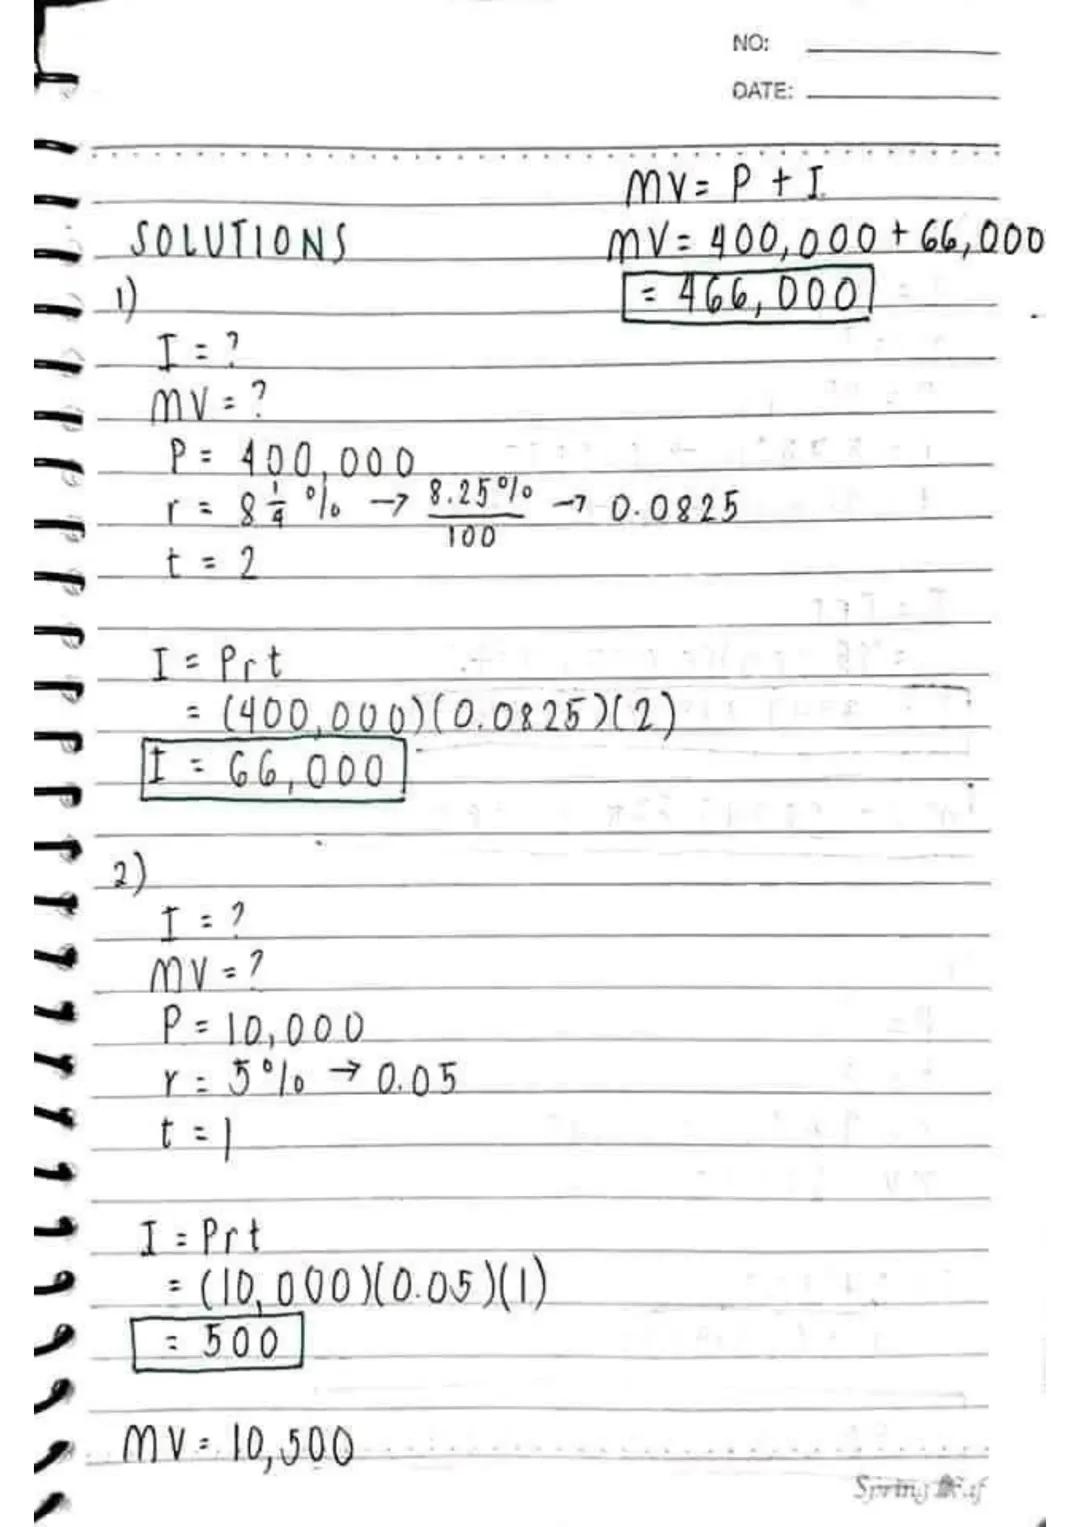 NO:
DATE:
MV = P + I
SOLUTIONS
MV = 400,000 + 66,000
= 466,000
1)
I = ?
MV = ?
P = 400,000
r = 8 1/4 % → 8.25%/100 → 0.0825
t = 2
I = Prt
= (400,000)(0.0825)(2)
I = 66,000
2)
I = ?
MV = ?
P = 10,000
r = 5% → 0.05
t = 1
I = Prt
= (10,000)(0.05)(1)
= 500
MV = 10,500
Spring